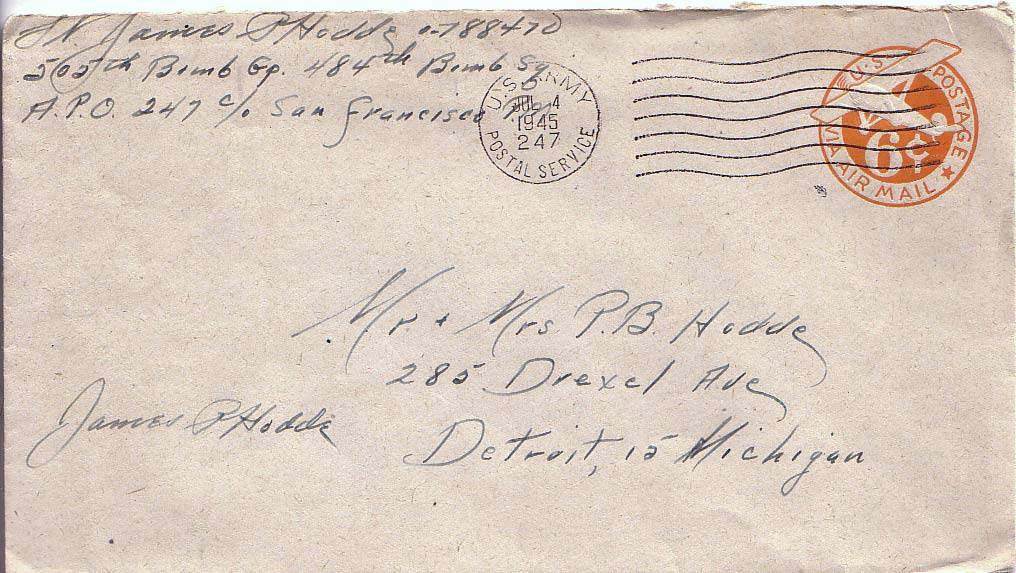 Lt. James P Hodde O-788470
505th Bomb Gp. 484th Bomb Sq
A.P.O. 247 c/o San Francisco
U.S. ARMY
JUL 4
1945
247
POSTAL SERVICE
U.S. POSTAGE
6¢
VIA AIR MAIL
Mr + Mrs P.B. Hodde
285 Drexel Ave
Detroit, 15 Michigan
James P Hodde